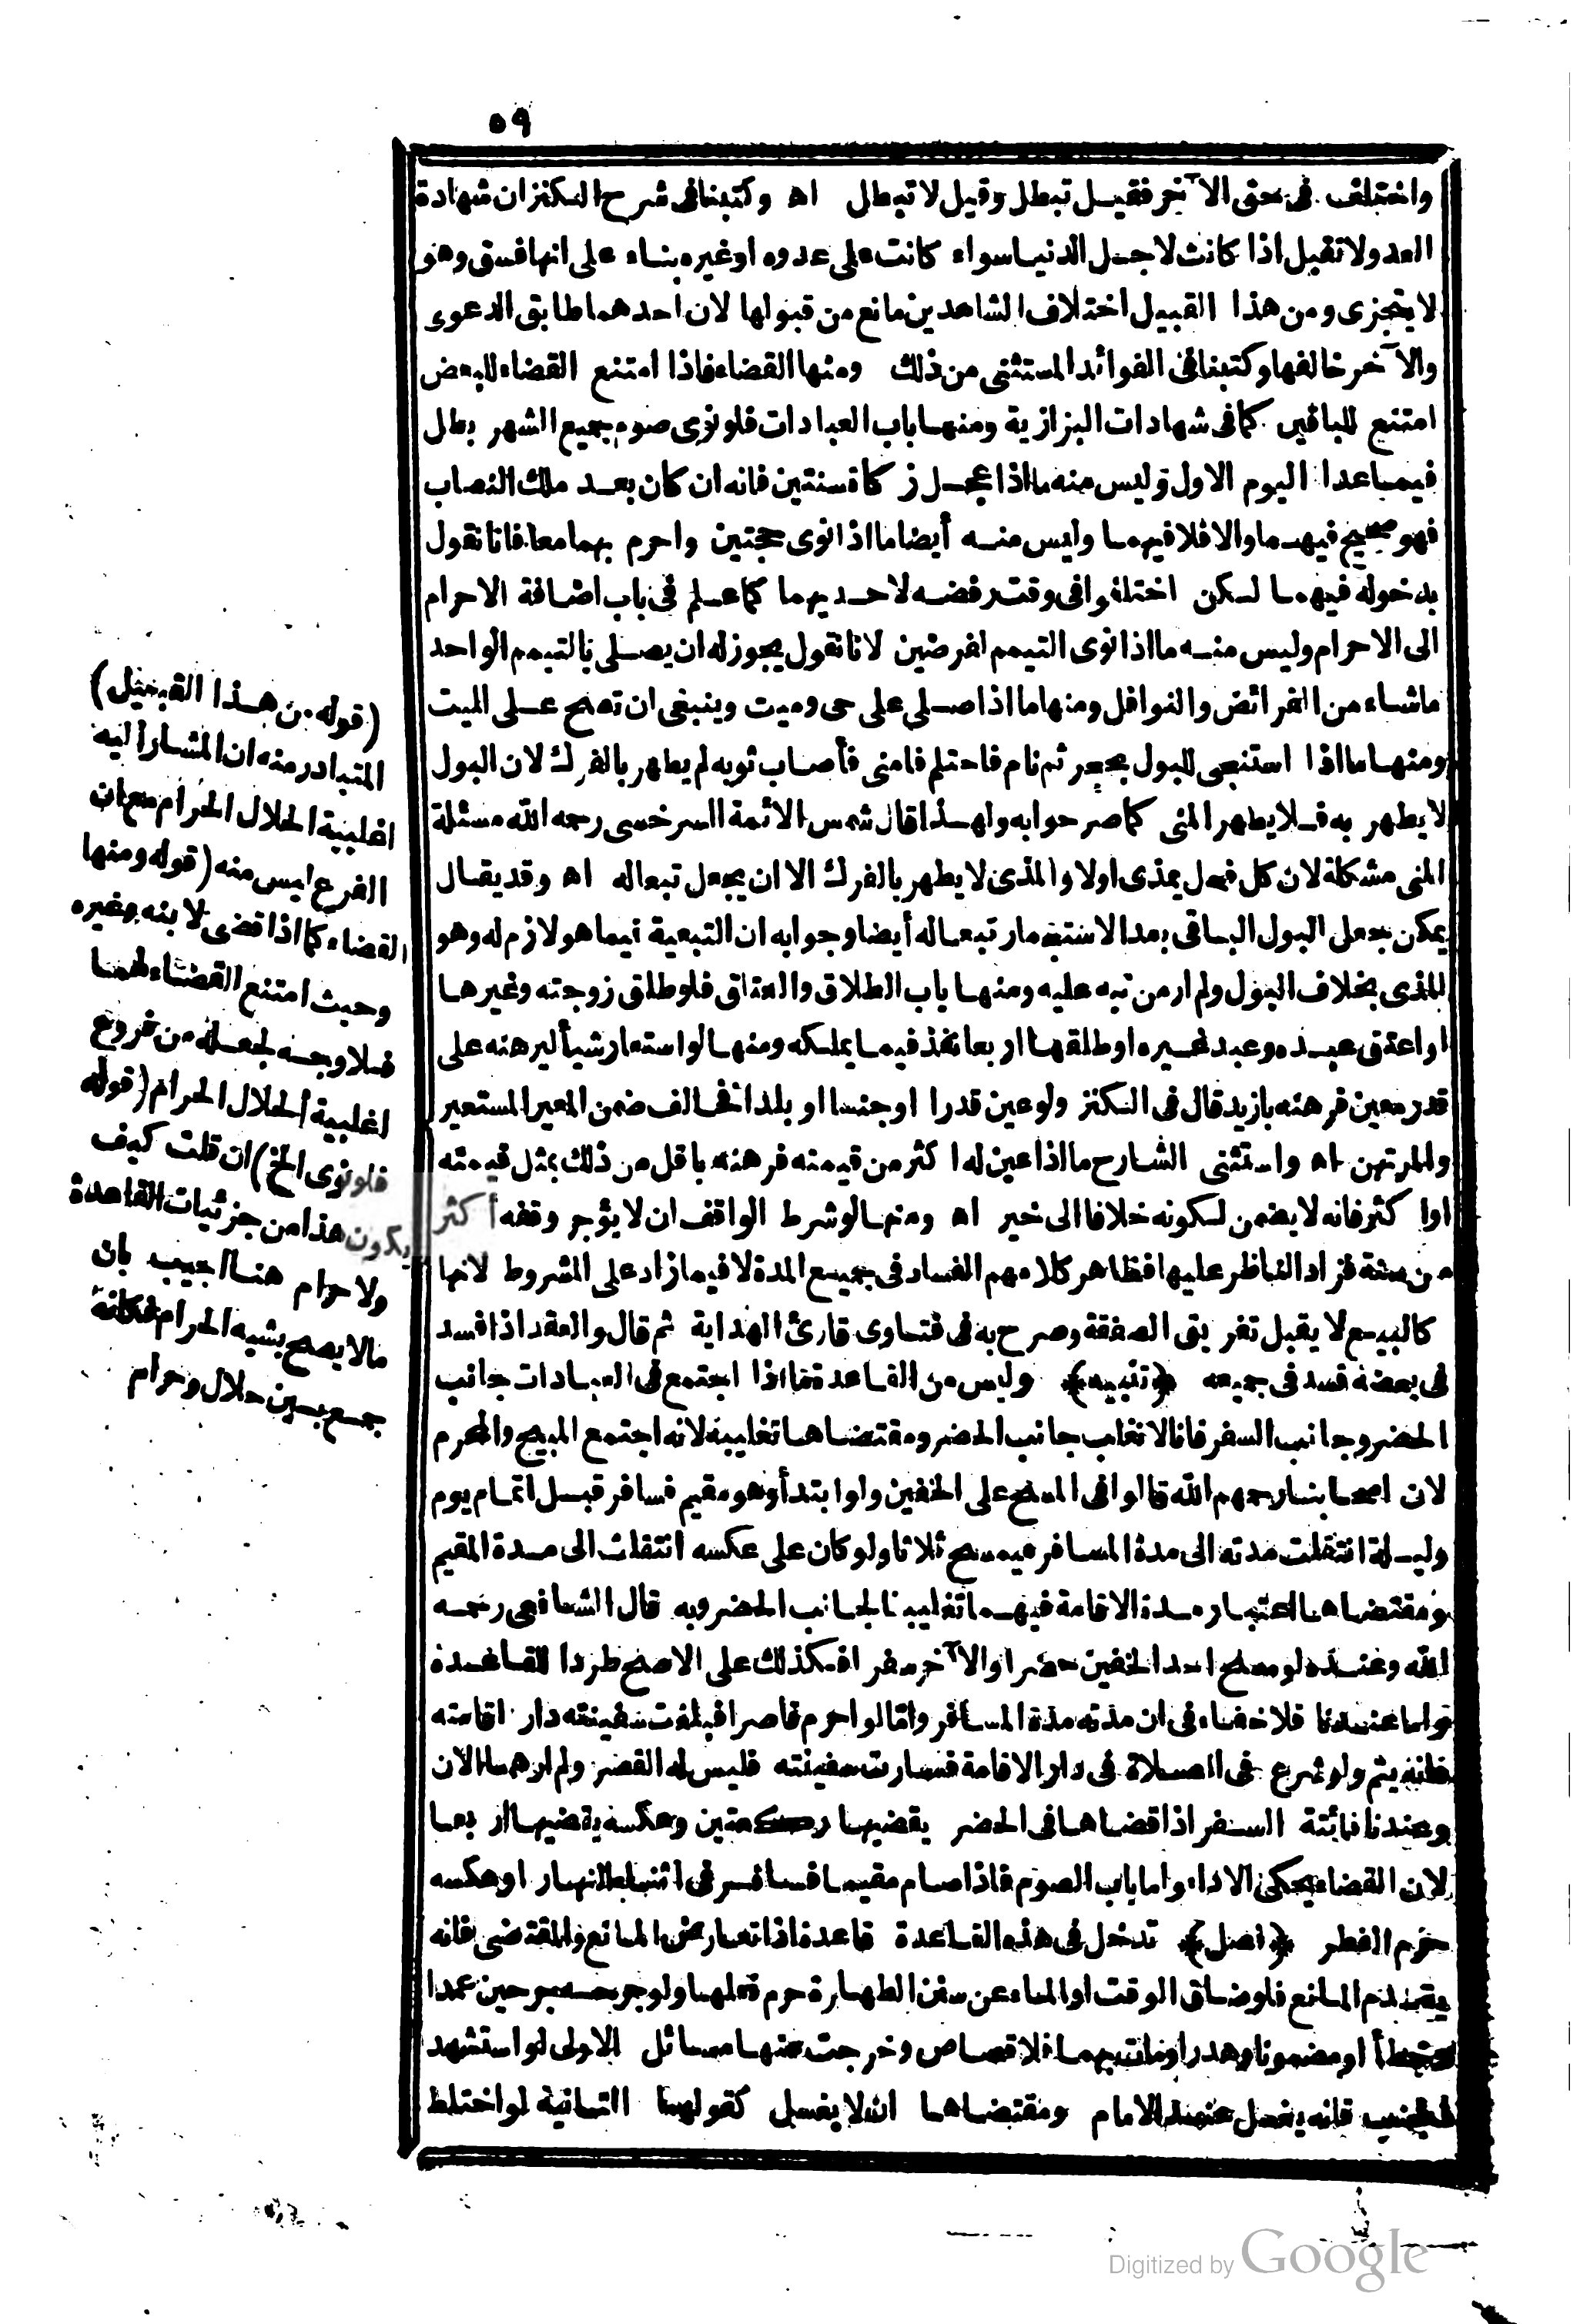 ٥٩
واختلف في حق الآخر فقيل تبطل وقيل لا تبطل اه وكتبنا في شرح الكنز ان شهادة
العدو لا تقبل اذا كانت لاجل الدنيا سواء كانت على عدوه او غيره بناء على انها فسق وهو
لا يتجزى ومن هذا القبيل اختلاف الشاهدين مانع من قبولها لان احدهما طابق الدعوى
والآخر خالفها وكتبنا في الفوائد المستثنى من ذلك ومنها القضاء فاذا امتنع القضاء للبعض
امتنع للباقين كما في شهادات البزازية ومنها باب العبادات فلو نوى صوم جميع الشهر بطل
فيما عدا اليوم الاول وليس منه ما اذا عجل زكاة سنتين فانه ان كان بعد ملك النصاب
فهو صحيح فيهما والا فلا فيهما وليس منه أيضا ما اذا نوى حجتين واحرم بهما معا فانا نقول
بدخوله فيهما لكن اختلفوا في وقت رفضه لاحديهما كما علم في باب اضافة الاحرام
الى الاحرام وليس منه ما اذا نوى التيمم لفرضين لانا نقول يجوز له ان يصلى بالتيمم الواحد
ما شاء من الفرائض والنوافل ومنها ما اذا صلى على حى وميت وينبغى ان تصح على الميت
ومنها ما اذا استنجى للبول بحجر ثم نام فاحتلم فامنى فأصاب ثوبه لم يطهر بالفرك لان البول
لا يطهر به فلا يطهر المنى كما صرحوا به ولهذا قال شمس الائمة السرخسى رحمه الله مسئلة
المنى مشكلة لان كل فحل يمذى اولا والمذى لا يطهر بالفرك الا ان يجعل تبعا له اه وقد يقال
يمكن جعل البول الباقى بعد الاستجمار تبعا له أيضا وجوابه ان التبعية فيما هو لازم له وهو
المذى بخلاف البول ولم ار من نبه عليه ومنها باب الطلاق والعتاق فلو طلق زوجته وغيرها
او اعتق عبده وعبد غيره او طلقها اربعا نفذ فيما يملكه ومنها لو استعار شيأ ليرهنه على
قدر معين فرهنه بازيد قال في الكنز ولو عين قدرا او جنسا او بلدا فخالف ضمن المعير المستعير
والمرتهن اه واستثنى الشارح ما اذا عين له اكثر من قيمته فرهنه باقل من ذلك بمثل قيمته
او اكثر فانه لا يضمن لكونه خلافا الى خير اه ومنها لو شرط الواقف ان لا يؤجر وقفه أكثر
من سنة فزاد الناظر عليها فظاهر كلامهم الفساد في جميع المدة لا فيما زاد على المشروط لانها
كالبيع لا يقبل تفريق الصفقة وصرح به في فتاوى قارئ الهداية ثم قال والعقد اذا فسد
في بعضه فسد في جميعه ﴿تنبيه﴾ وليس من القاعدة ما اذا اجتمع في العبادات جانب
الحضر وجانب السفر فانا لا نغلب جانب الحضر ومقتضاها تغليبه لانه اجتمع المبيح والمحرم
لان اصحابنا رحمهم الله قالوا في المسح على الخفين ولو ابتدأ وهو مقيم فسافر قبل اتمام يوم
وليلة انتقلت مدته الى مدة المسافر فيمسح ثلاثا ولو كان على عكسه انتقلت الى مدة المقيم
ومقتضاها اعتبار مدة الاقامة فيهما تغليبا لجانب الحضر وبه قال الشافعى رحمه
الله وعنده لو مسح احد الخفين حضرا والآخر سفرا فكذلك على الاصح طردا للقاعدة
واما عندنا فلا خفاء في ان مدته مدة المسافر واما لو احرم قاصرا فبلغت سفينته دار اقامته
فانه يتم ولو شرع في الصلاة في دار الاقامة فسارت سفينته فليس له القصر ولم ارهما الان
وعندنا فائتة السفر اذا قضاها في الحضر يقضيها ركعتين وعكسه يقضيها اربعا
لان القضاء يحكى الاداء واما باب الصوم فاذا صام مقيما فسافر في اثناء النهار او عكسه
حرم الفطر ﴿فصل﴾ تدخل في هذه القاعدة قاعدة اذا تعارض المانع والمقتضى فانه
يقدم المانع فلو ضاق الوقت او الماء عن سنن الطهارة حرم فعلها ولو جرحه جرحين عمدا
وخطأ او مضمونا وهدرا ومات بهما فلا قصاص وخرجت عنها مسائل الاولى لو استشهد
الجنب فانه يغسل عند الامام ومقتضاها ان لا يغسل كقولهما الثانية لو اختلط
(قوله من هذا القبيل)
المتبادر منه ان المشار أليه
اغلبية الحلال الحرام مع ان
الفرع ليس منه (قوله ومنها
القضاء كما اذا قضى لابنه وغيره
وحيث امتنع القضاء لهما
فلا وجه لجعله من فروع
اغلبية الحلال الحرام (قوله
فلو نوى الخ) ان قلت كيف
يكون هذا من جزئيات القاعدة
ولا حرام هنا اجيب بان
ما لا يصح يشبه الحرام فكانه
جمع بين حلال وحرام
Digitized by Google